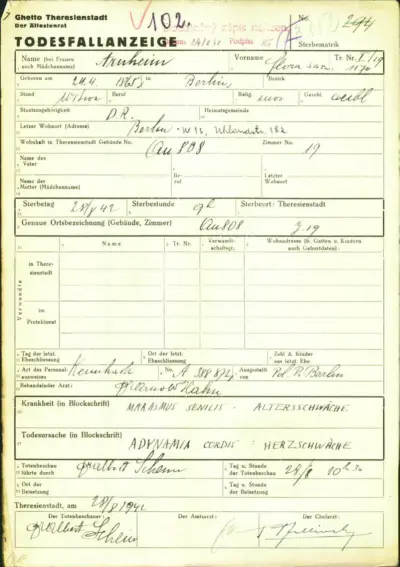 Ghetto Theresienstadt
Der Ältestenrat
102
No. 294
TODESFALLANZEIGE
Sterbematrik
Name (bei Frauen auch Mädchenname) Arnheim Vorname Flora Sara Tr. Nr. I/19
Geboren am 24.4. in Berlin Bezirk
Stand Witwe Beruf Relig. mos Geschl. weibl
Staatszugehörigkeit D.R. Heimatsgemeinde
Letzter Wohnort (Adresse) Berlin-W15, Uhlandstr. 182
Wohnhaft in Theresienstadt Gebäude No. Qu 808 Zimmer No. 19
Name des Vater Beruf Letzter Wohnort
Name der Mutter (Mädchenname)
Sterbetag 28/8 42 Sterbestunde 9h Sterbeort: Theresienstadt
Genaue Ortsbezeichnung (Gebäude, Zimmer) Qu 808 Z. 19
Name Tr. Nr. Verwandtschaftsgr. Wohnadresse (b. Gatten u. Kindern auch Geburtsdaten)
Verwandte
in Theresienstadt
im Protektorat
Tag der letzt. Eheschliessung Ort der letzt. Eheschliessung Zahl d. Kinder aus letzt. Ehe
Art des Personalausweises Kennkarte No. A Ausgestellt von Pol. P. Berlin
Behandelnder Arzt: Hahn
Krankheit (in Blockschrift) MARASMUS SENILIS - ALTERSSCHWÄCHE
Todesursache (in Blockschrift) ADYNAMIA CORDIS : HERZSCHWÄCHE
Totenbeschau führte durch Tag u. Stunde der Totenbeschau 28/8 10h 30
Ort der Beisetzung Tag u. Stunde der Beisetzung
Theresienstadt, am 28/8 1942
Der Totenbeschauer: Der Amtsarzt: Der Chefarzt: